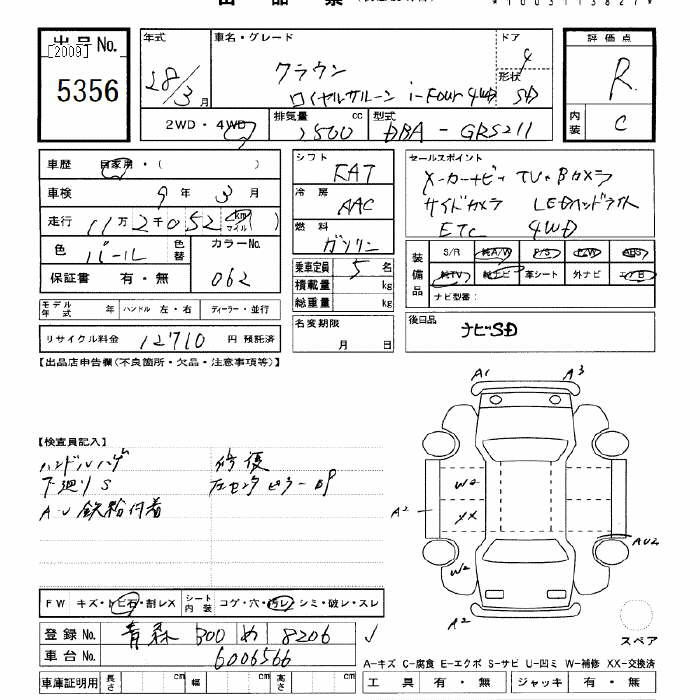 出品票
*1003113827*
出品 No.
[2009]
5356
年式
28/3月
車名・グレード
クラウン
ロイヤルサルーン i-Four 4WD
ドア
4
形状
SD
評価点
R
内装
C
2WD・4WD
排気量
2500 cc
型式
DBA - GRS211
車歴
自家用・( )
車検
9年3月
走行
11万2千052 km
マイル
色
パール
色替
カラーNo.
062
保証書 有・無
シフト
FAT
冷房
AAC
燃料
ガソリン
乗車定員 5 名
積載量 kg
総重量 kg
セールスポイント
メーカーナビ・TV・Bカメラ
サイドカメラ LEDヘッドライト
ETC 4WD
装備品
S/R 純A/W P/S P/W ABS
純TV 純ナビ 革シート 外ナビ エアB
ナビ型番:
モデル年式 年 ハンドル 左・右 ディーラー・並行
名変期限
月 日
後日品
ナビSD
リサイクル料金 12710 円 預託済
【出品店申告欄(不良箇所・欠品・注意事項等)】
A1 A3
【検査員記入】
ハンドルハゲ 修復
下廻りS 左センターピラー
A-U 鉄粉付着
W2
A2
XX
AU2
W2
A2
FW キズ・トビ石・割レX
シート内装 コゲ・穴・汚レ・シミ・破レ・スレ
登録 No. 青森 300 め 8206
車台 No. 6006566
スペア
A-キズ C-腐食 E-エクボ S-サビ U-凹ミ W-補修 XX-交換済
車庫証明用 長さ cm 幅 cm 高さ cm
工具 有・無 ジャッキ 有・無